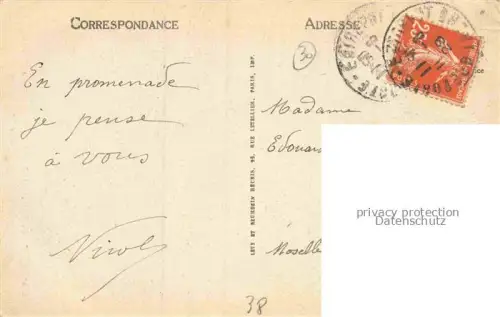 CORRESPONDANCE
ADRESSE
30
En promenade
je pense
à vous
Nicole
LEVY ET NEURDEIN RÉUNIS, 44, RUE LETELLIER, PARIS, IMP.
Madame
Edouar
Moselle
25
privacy protection
Datenschutz
38